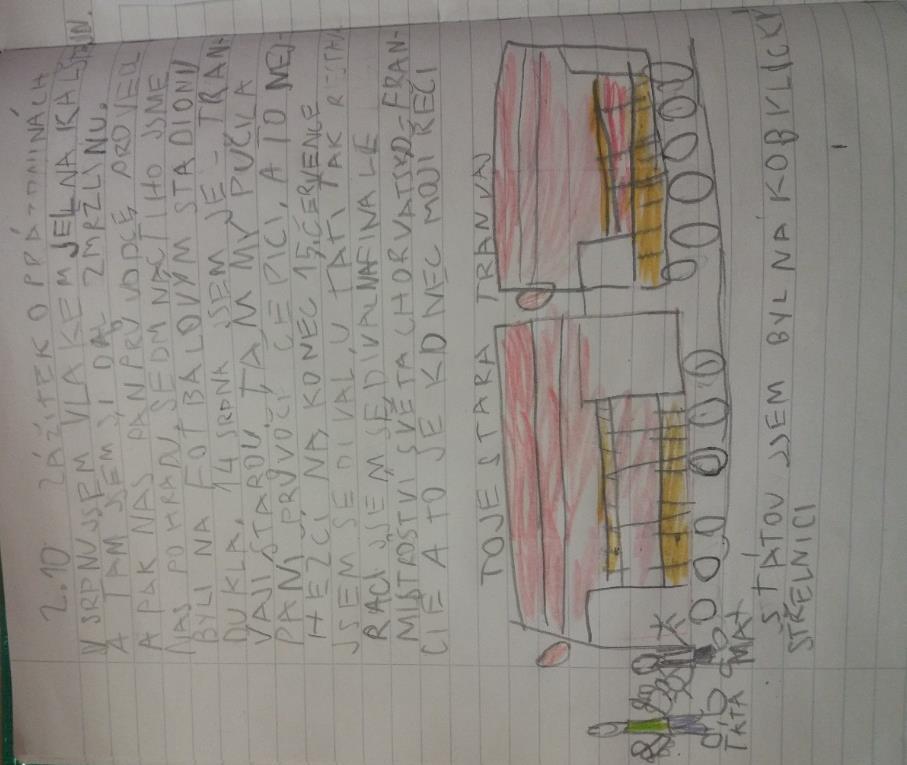 2.10 ZÁŽITEK O PRÁZDNINÁCH
V SRPNU JSEM VLAKEM JEL NA KALŠTEJN.
A TAM JSEM SI DAL ZMRZLINU.
A PAK NAS PAN PRŮVODCE PROVEDL
NAS PO HRADU SEDM NÁCTIHO JSME
BYLI NA FOTBALOVÝM STADIONU
DUKLA. 14 SRPNA JSEM JE - TRAN-
VAJÍ STAROU. TAM MY PUČILA
PANÍ PRŮVOČÍ ČEPICI, A TO NEJ-
HEZČÍ NA KONEC 15. ČERVENCE
JSEM SE DIVAL, U TATI JAK
RACI JSEM SE DIVAL NA FINALE
MISTROSTVÍ SVĚTA CHORVATSKO - FRAN-
CIE A TO JE KONEC MOJI ŘEČI
TO JE STARA TRANVAJ
TATA MAX
S TÁTOU JSEM BYL NA KOBILICKÝ
STŘELNICI